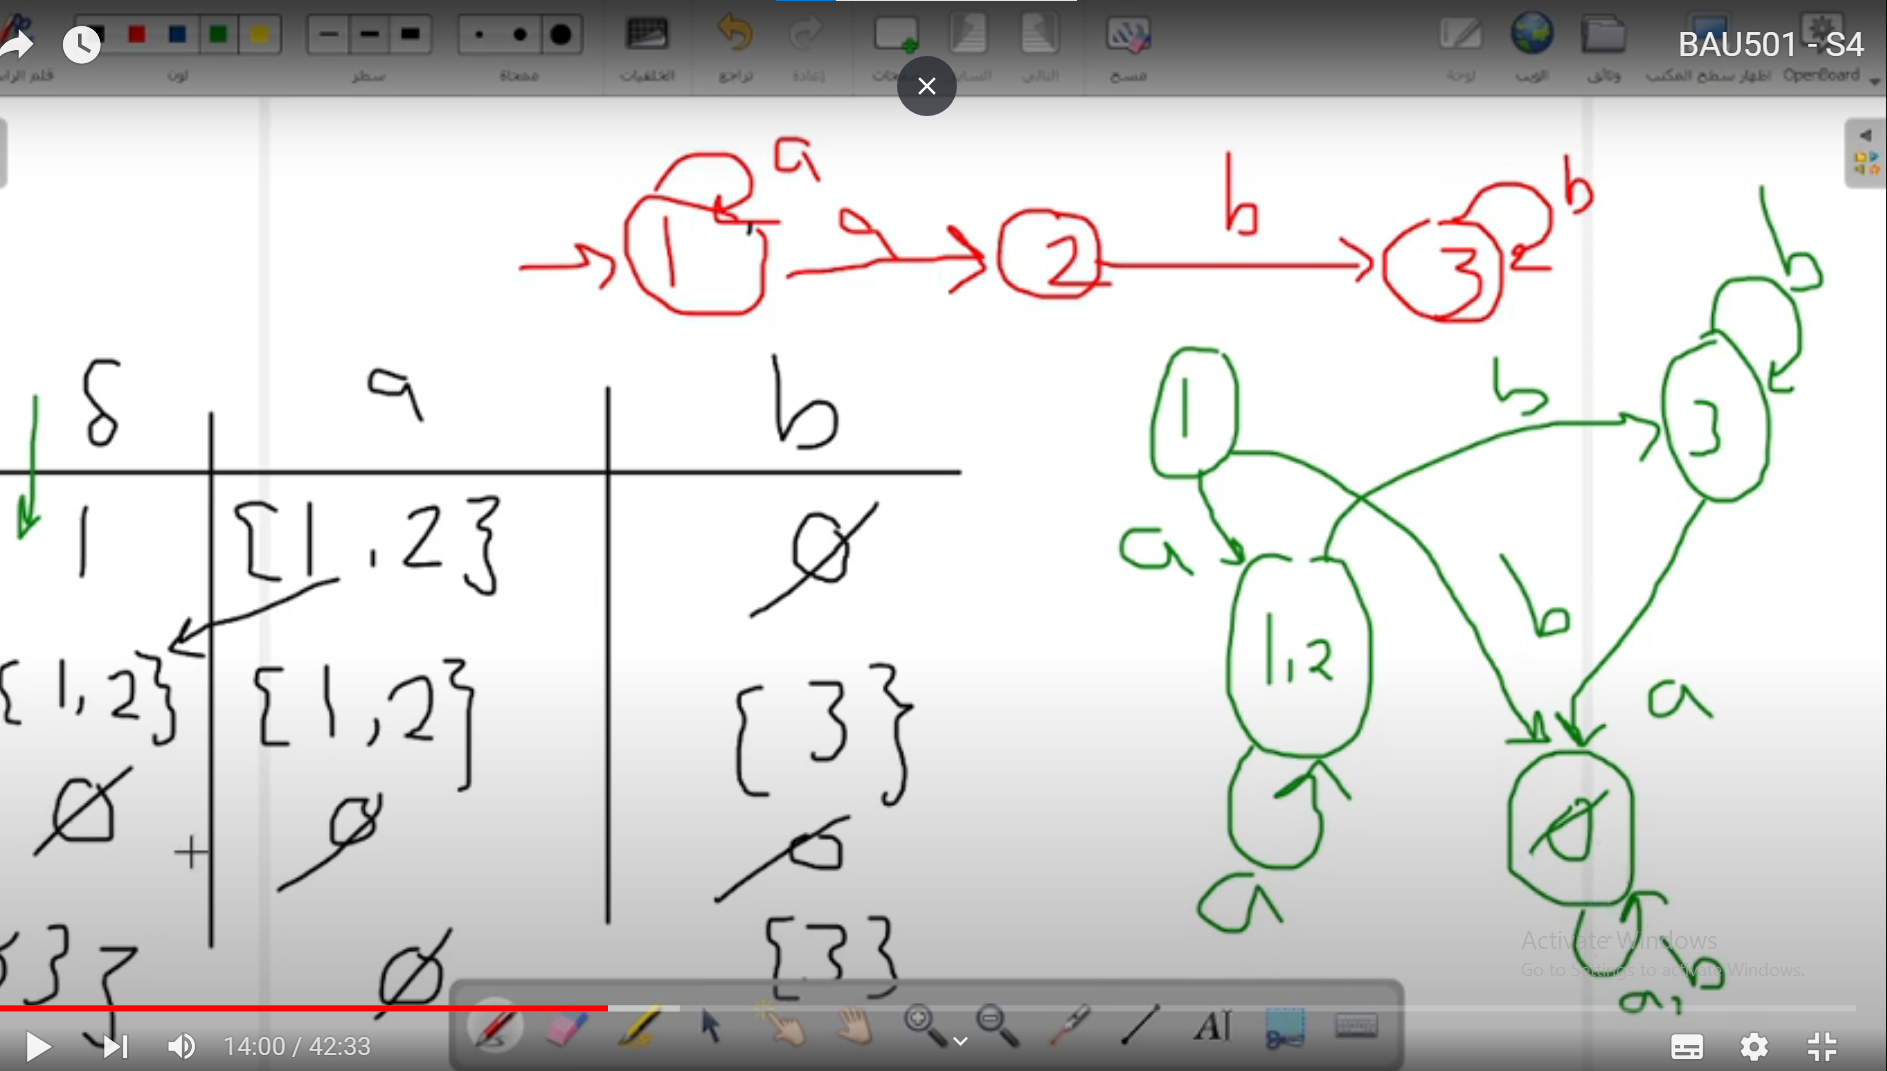 BAU501 - S4
لون
سطر
ممحاة
الخلفيات
تراجع
إعادة
التالي
مسح
لوحة
الويب
وثائق
اظهار سطح المكتب
OpenBoard
a
1 a 2 b 3 b
δ a b
1 {1,2} ∅
{1,2} {1,2} {3}
∅ ∅ ∅
{3} ∅ {3}
b
1 b 3
a
1,2 b
a
∅
a
a,b
Activate Windows
Go to Settings to activate Windows.
14:00 / 42:33